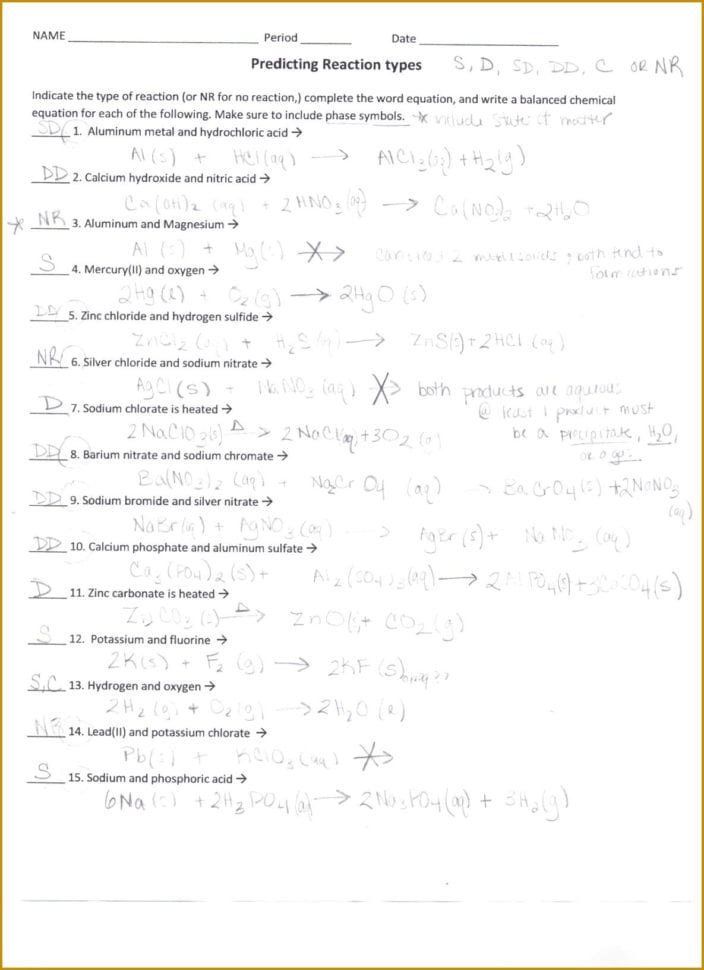 NAME Period Date
Predicting Reaction types S, D, SD, DD, C OR NR
Indicate the type of reaction (or NR for no reaction,) complete the word equation, and write a balanced chemical
equation for each of the following. Make sure to include phase symbols. * include state of matter
SD 1. Aluminum metal and hydrochloric acid →
Al (s) + HCl (aq) → AlCl3 (aq) + H2 (g)
DD 2. Calcium hydroxide and nitric acid →
Ca(OH)2 (aq) + 2HNO3 (aq) → Ca(NO3)2 + 2H2O
* NR 3. Aluminum and Magnesium →
Al (s) + Mg (s) 2 metal solids, both tend to
form cations
S 4. Mercury(II) and oxygen →
2Hg (l) + O2 (g) → 2HgO (s)
DD 5. Zinc chloride and hydrogen sulfide →
ZnCl2 (aq) + H2S (g) → ZnS(s) + 2HCl (aq)
NR 6. Silver chloride and sodium nitrate →
AgCl (s) + NaNO3 (aq) both products are aqueous
@ least 1 product must
be a precipitate, H2O,
or a gas.
D 7. Sodium chlorate is heated →
2 NaClO3(s) Δ → 2 NaCl + 3O2 (g)
DD 8. Barium nitrate and sodium chromate →
Ba(NO3)2 (aq) + Na2CrO4 (aq) → BaCrO4 (s) + 2NaNO3
(aq)
DD 9. Sodium bromide and silver nitrate →
NaBr (aq) + AgNO3 (aq) → AgBr (s) + NaNO3 (aq)
DD 10. Calcium phosphate and aluminum sulfate →
Ca3(PO4)2 (s) + Al2(SO4)3 (aq) → 2AlPO4(s) + 3CaSO4(s)
D 11. Zinc carbonate is heated →
ZnCO3 (s) Δ → ZnO(s) + CO2 (g)
S 12. Potassium and fluorine →
2K(s) + F2 (g) → 2KF (s)
S,C 13. Hydrogen and oxygen →
2H2 (g) + O2 (g) → 2H2O (l)
NR 14. Lead(II) and potassium chlorate →
Pb(s) + KClO3 (aq)
S 15. Sodium and phosphoric acid →
6Na (s) + 2H3PO4 (aq) → 2Na3PO4 (aq) + 3H2 (g)